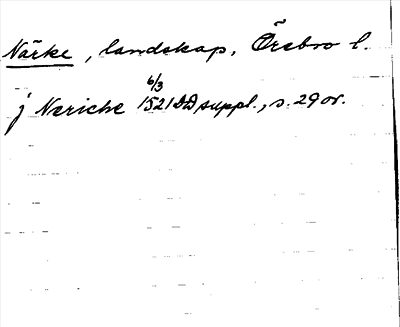 Närke, landskap, Örebro l.
6/3
j Nericke 1521 DD suppl., s. 29 or.